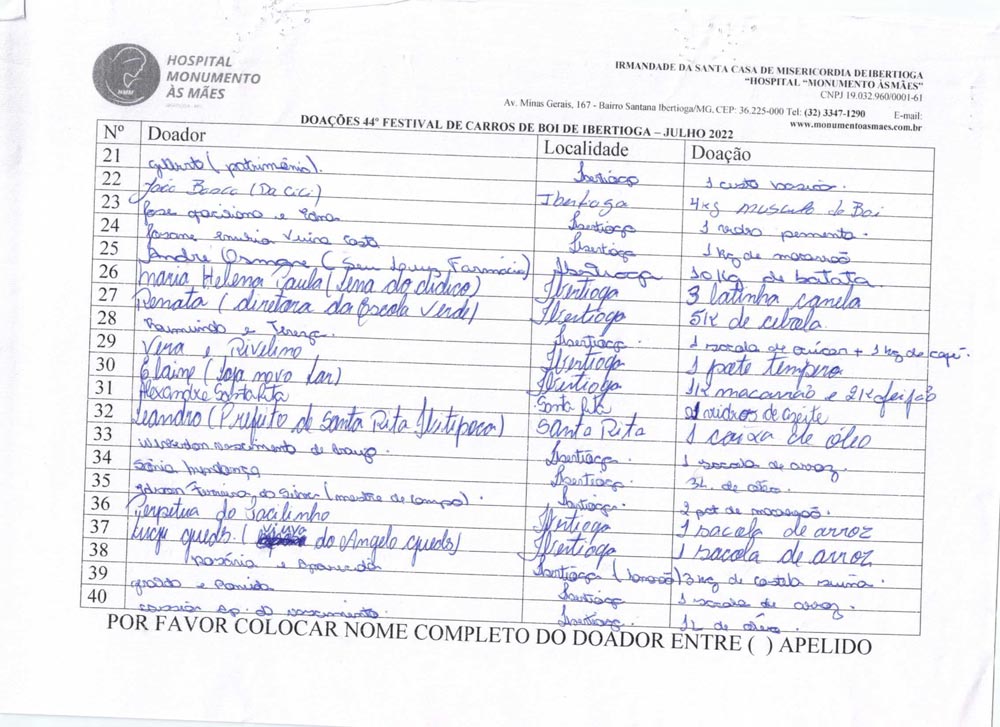 HOSPITAL
MONUMENTO
ÀS MÃES
IRMANDADE DA SANTA CASA DE MISERICORDIA DE IBERTIOGA
"HOSPITAL "MONUMENTO ÀS MÃES"
CNPJ 19.032.960/0001-61
Av. Minas Gerais, 167 - Bairro Santana Ibertioga/MG, CEP: 36.225-000 Tel: (32) 3347-1290 E-mail:
www.monumentoasmaes.com.br
DOAÇÕES 44º FESTIVAL DE CARROS DE BOI DE IBERTIOGA – JULHO 2022
Nº Doador Localidade Doação
21 Gilberto (patrimônio). Ibertioga 1
22 João Bosco (Da Cici) Ibertioga 4kg musculo de Boi
23 Jose e Ibertioga 1 vidro pementa.
24 Rosane Vieira Costa Ibertioga 1 kg de macarrão
25 André (Seu Farmácia) Ibertioga 10 kg de batata
26 Maria Helena Paula (Lena do didico) Ibertioga 3 latinha canela
27 Renata (diretora da Escola Verde) Ibertioga 5K de cebola
28 Raimundo e Tereza. Ibertioga 1 sacola de açúcar + 1 kg de café.
29 Vera e Rivelino Ibertioga 1 pote tempero
30 Elaine (Loja novo lar) Ibertioga 1K macarrão e 2K feijão
31 Alexandre Santa Rita Santa Rita vidros de azeite
32 Leandro (Prefeito de Santa Rita Ibitipoca) Santa Rita 1 caixa de óleo
33 nascimento de Araujo. Ibertioga. 1 sacola de arroz.
34 Sônia Mendonça Ibertioga. 3L de óleo.
35 Ferreira da Silva (mestre de campo). Ibertioga. 2 pct de macarrão.
36 Perpétua do Jacilinho Ibertioga 1 sacola de arroz
37 (viuva do Angelo guedes) Ibertioga 1 sacola de arroz
38 Rosária e Aparecida Ibertioga 3 kg de costela suína.
39 geraldo e Ibertioga 1 sacola de arroz.
40 Ap. do nascimento. Ibertioga. 1L de óleo.
POR FAVOR COLOCAR NOME COMPLETO DO DOADOR ENTRE ( ) APELIDO